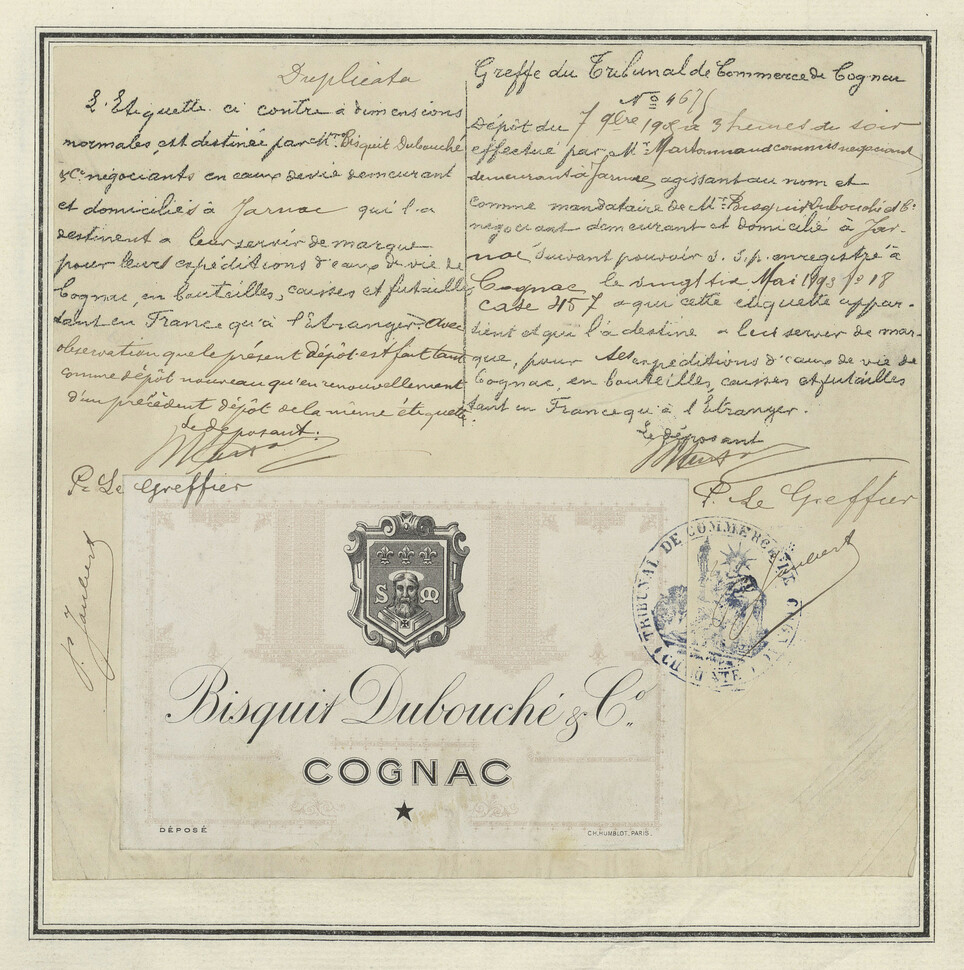 Duplicata
L'Etiquette ci contre à dimensions
normales, est destinée par Mrs Bisquit Dubouché
& Cie négociants en eaux de vie demeurant
et domiciliés à Jarnac qui la
destinent a leur servir de marque
pour leurs expéditions d'eaux de vie de
Cognac, en bouteilles, caisses et futailles
tant en France qu'à l'Etranger. Avec
observation que le présent dépôt est fait tant
comme dépôt nouveau qu'en renouvellement
d'un précédent dépôt de la même étiquette.
Le déposant.
P. Le Greffier
Jaubert
Greffe du Tribunal de Commerce de Cognac
No 467
Dépôt du 7 9bre à 3 heures du soir
effectué par Mr commis négociant
demeurant à Jarnac, agissant au nom et
comme mandataire de Mrs Bisquit Dubouché et Cie
négociant demeurant et domicilié à Jar-
nac, suivant pouvoir s. s. p. enregistré à
Cognac, le vingt six Mai fo 18
case 457 a qui cette étiquette appar-
tient et qui l'a destine a leur servir de mar-
que, pour ses expéditions d'eaux de vie de
Cognac, en bouteilles, caisses et futailles
tant en France qu'à l'Etranger.
Le déposant
P. Le Greffier
Jaubert
TRIBUNAL DE COMMERCE DE COGNAC
(CHARENTE)
S M
Bisquit Dubouché & Co.
COGNAC
DÉPOSÉ
CH. HUMBLOT, PARIS.